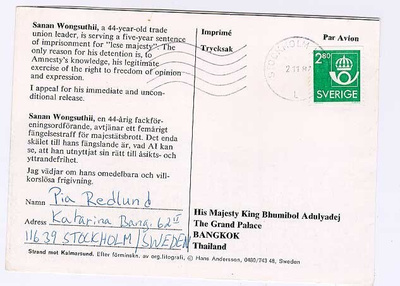 Sanan Wongsuthii, a 44-year-old trade
union leader, is serving a five-year sentence
of imprisonment for "lese majesty". The
only reason for his detention is, to
Amnesty's knowledge, his legitimate
exercise of the right to freedom of opinion
and expression.
I appeal for his immediate and uncon-
ditional release.
Sanan Wongsuthii, en 44-årig fackför-
eningsordförande, avtjänar ett femårigt
fängelsestraff för majestätsbrott. Det enda
skälet till hans fängslande är, vad AI kan
se, att han utnyttjat sin rätt till åsikts- och
yttrandefrihet.
Jag vädjar om hans omedelbara och vill-
korslösa frigivning.
Namn Pia Redlund
Adress Katarina Bang. 62 II
116 39 STOCKHOLM/SWEDEN
Strand mot Kulmarsund. Efter förminskn. av org.litografi, © Hans Andersson, 0480/743 48, Sweden
Imprimé
Trycksak
Par Avion
STOCKHOLM
2 11
L
2.80
SVERIGE
His Majesty King Bhumibol Adulyadej
The Grand Palace
BANGKOK
Thailand